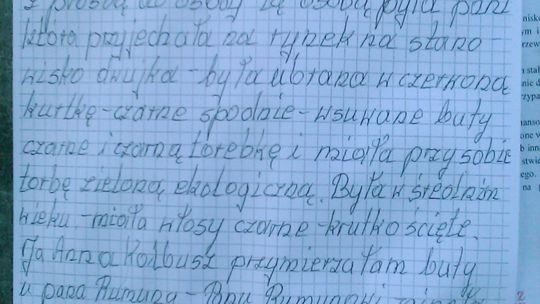 z prośbą do osoby tą osobą była pani
która przyjechała na rynek na stano-
wisko dwójka - była ubrana w czerwoną
kurtkę - czarne spodnie - wsuwane buty
czarne i czarną torebkę i miała przy sobie
torbę zieloną ekologiczną. Była w średnim
wieku - miała włosy czarne - krutko ścięte.
Ja Anna Kolbusz przymierzałam buty
u pana Rumuna -